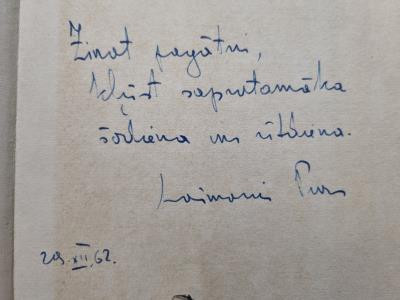 Zinot pagātni,
kļūst saprotamāka
šodiena un rītdiena.
Laimonis Purs
29.XII.62.